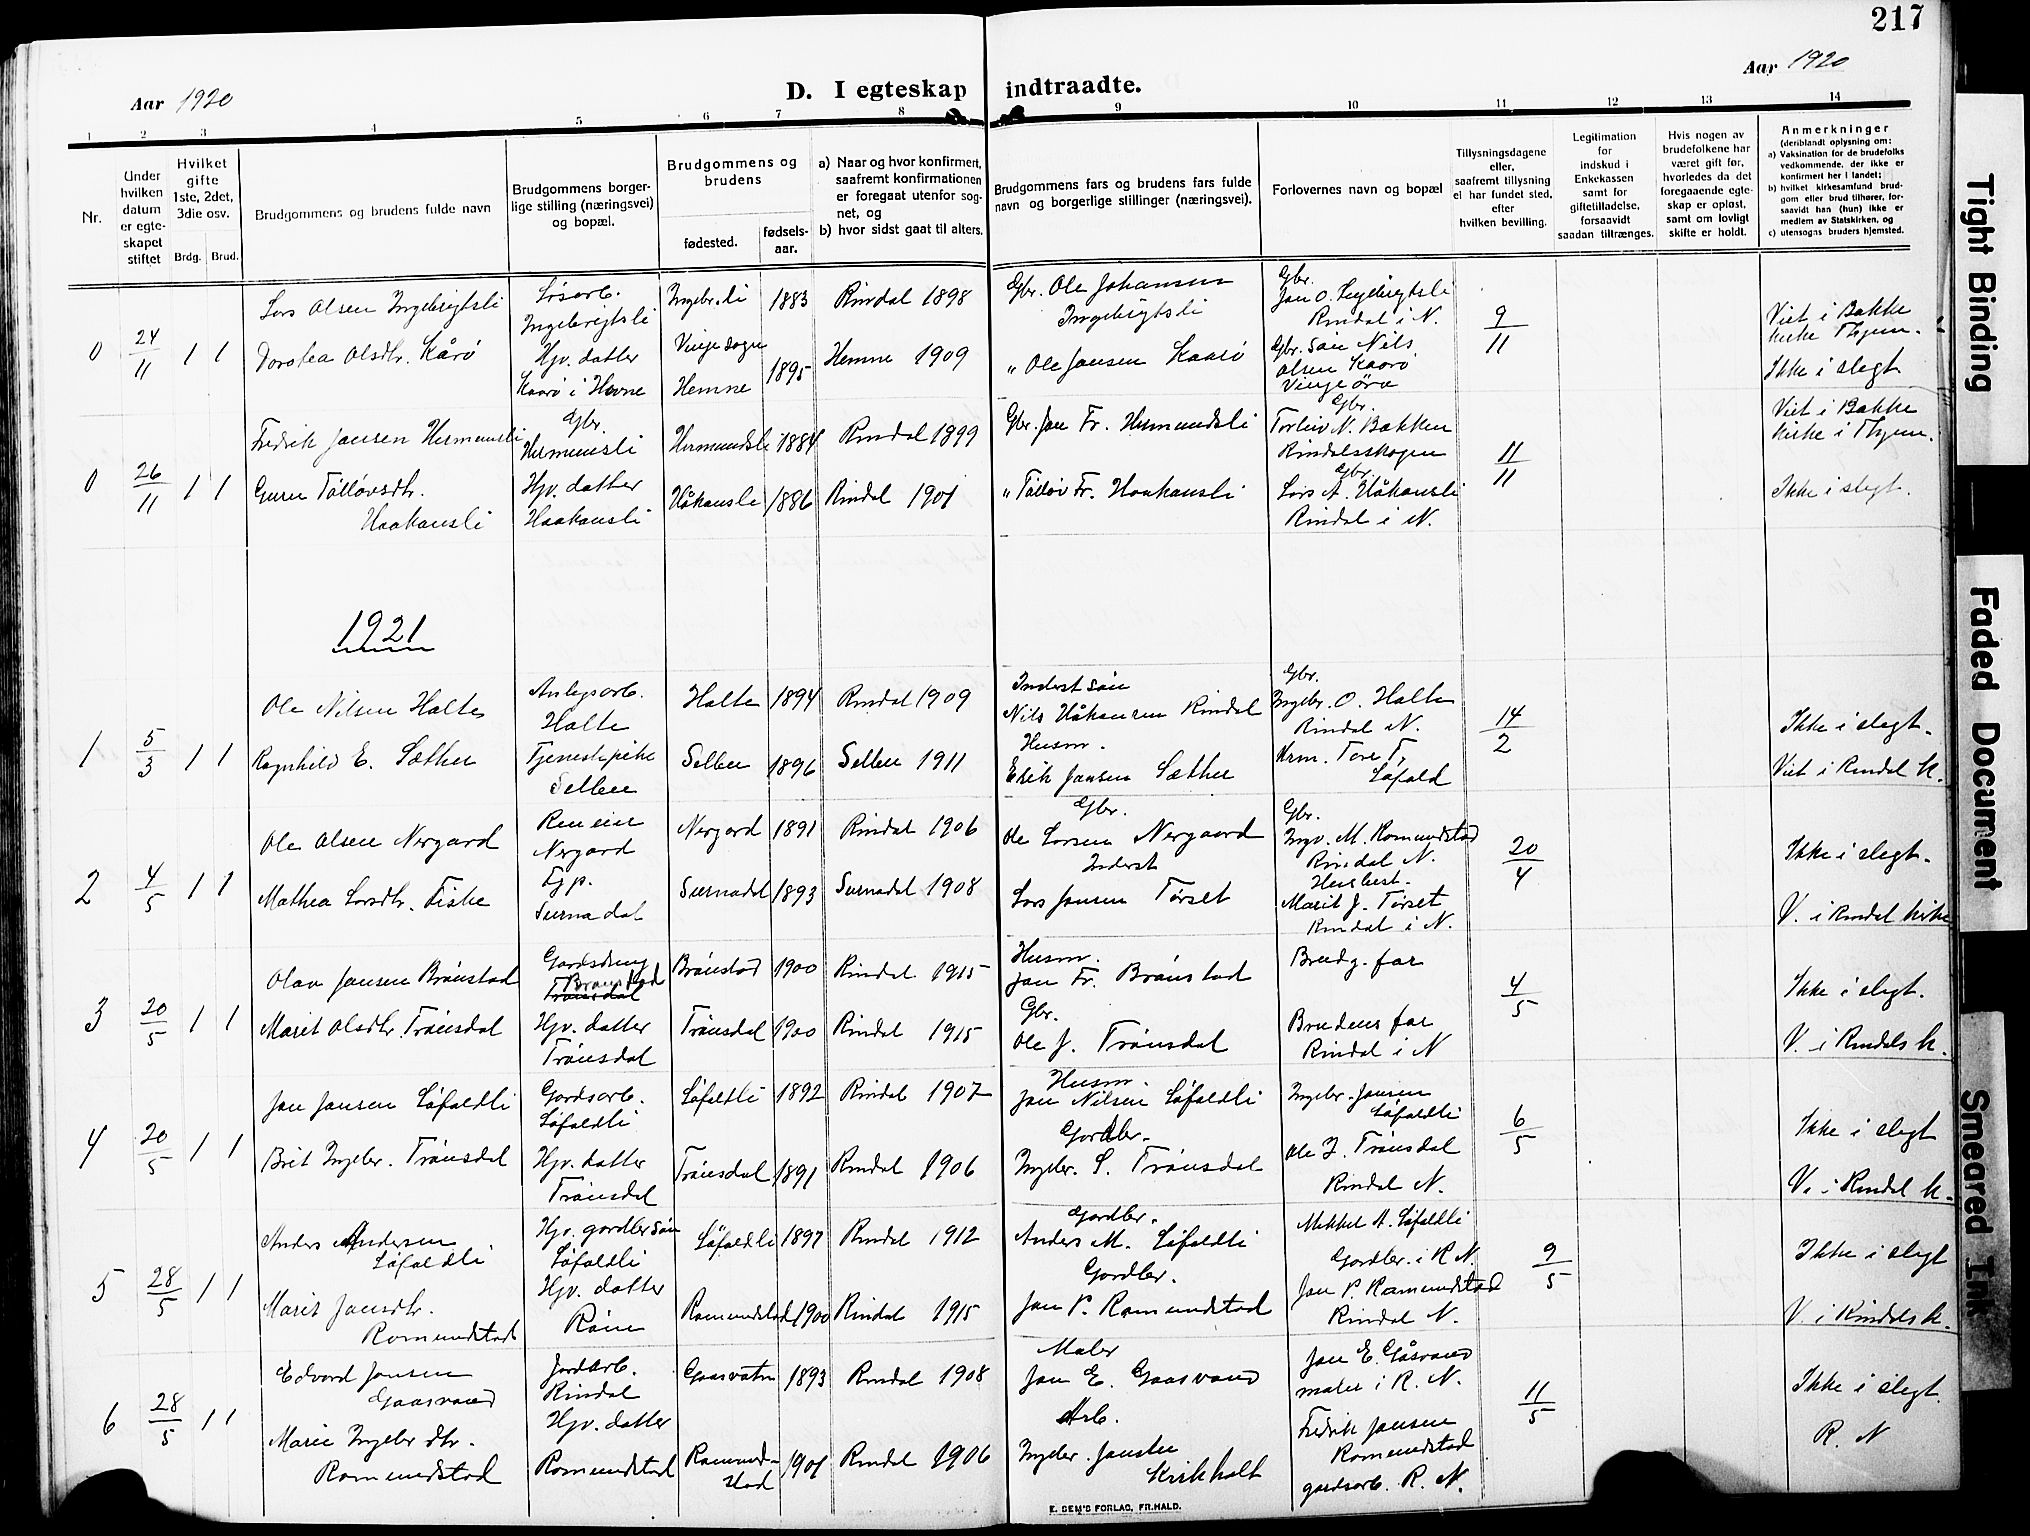 217
Aar 1920
D. I egteskap indtraadte.
Aar 1920
1 2 3 4 5 6 7 8 9 10 11 12 13 14
Nr.
Under hvilken datum er egteskapet stiftet
Hvilket gifte 1ste, 2det, 3die osv.
Brdg. Brud.
Brudgommens og brudens fulde navn
Brudgommens borgerlige stilling (næringsvei) og bopæl.
Brudgommens og brudens
fødested.
fødselsaar.
a) Naar og hvor konfirmert, saafremt konfirmationen er foregaat utenfor sognet, og
b) hvor sidst gaat til alters.
Brudgommens fars og brudens fars fulde navn og borgerlige stillinger (næringsvei).
Forlovernes navn og bopæl
Tillysningsdagene eller, saafremt tillysning ei har fundet sted, efter hvilken bevilling.
Legitimation for indskud i Enkekassen samt for giftetilladelse, forsaavidt saadan tiltrænges.
Hvis nogen av brudefolkene har været gift før, hvorledes da det foregaaende egteskap er opløst, samt om lovligt skifte er holdt.
Anmerkninger (deriblandt oplysning om:
a) Vaksination for de brudefolks vedkommende, der ikke er konfirmert her i landet;
b) hvilket kirkesamfund brudgom eller brud tilhører, forsaavidt han (hun) ikke er medlem av Statskirken, og
c) utensogns bruders hjemsted.
0 24/11 1 1
Lars Olsen Ingebrigtsli
Løsarb. Ingebrigtsli
Ingebr.li 1883 Rindal 1898
Gbr. Ole Johansen Ingebrigtsli
Gbr. Jon O. Ingebrigtsli Rindal i N.
9/11
Viet i Bakke kirke Thjem.
Dorotea Olsdtr. Kårø
Hjv. datter Kaarø i Hevne
Vinje sogn Hemne 1895 Hemne 1909
" Ole Jansen Kaarø
Gbr. søn Nils Olsen Kaarø Vinjeøra
Ikke i slegt
0 26/11 1 1
Fredrik Jansen Hermunsli
Gbr. Hermunsli
Hermundsli 1884 Rindal 1899
Gbr. Jon Fr. Hermundsli
Gbr. Torleiv N. Bakken Rindalsskogen
11/11
Viet i Bakke kirke i Thjem.
Guru Tølløvsdtr. Haakansli
Hjv. datter Haakansli
Håkansli 1886 Rindal 1901
" Tølløv Fr. Haakansli
Gbr. Lars A. Håkansli Rindal i N.
Ikke i slegt.
1921
1 5/3 1 1
Ole Nilsen Halte
Anlegsarb. Halte
Halte 1894 Rindal 1909
Inderst søn Nils Håkansen Rindal
Gbr. Ingebr. O. Halte Rindal N.
14/2
Ikke i slegt.
Ragnhild E. Sæther
Tjenestepike Selbu
Selbu 1896 Selbu 1911
Husm. Erik Jansen Sæther
Krm. Tore T. Løfald
Viet i Rindal k.
2 4/5 1 1
Ole Olsen Nergard
Nergard
Nergard 1891 Rindal 1906
Gbr. Ole Larsen Nergaard
Gbr. Ingv. M. Romundstad Rindal N.
20/4
Ikke i slegt.
Mathea Larsdtr. Fiske
Tjp. Surnadal
Surnadal 1893 Surnadal 1908
Inderst Lars Jansen Tørset
Marit J. Tørset Rindal i N.
V. i Rindal kirke
3 20/5 1 1
Olav Jansen Brønstad
Gardsdreng Brønstad
Brønstad 1900 Rindal 1915
Husm. Jon Fr. Brønstad
Brudg. far
4/5
Ikke i slegt.
Marit Olsdtr. Trønsdal
Hjv. datter Trønsdal
Trønsdal 1900 Rindal 1915
Gbr. Ole J. Trønsdal
Brudens far Rindal i N
V. i Rindals k.
4 20/5 1 1
Jon Jansen Løfaldli
Gardsarb. Løfaldli
Løfaldli 1892 Rindal 1907
Husm. Jon Nilsen Løfaldli
Ingebr. Jansen Løfaldli
6/5
Ikke i slegt
Brit Ingebr. Trønsdal
Hjv. datter Trønsdal
Trønsdal 1891 Rindal 1906
Gardbr. Ingebr. L. Trønsdal
Ole J. Trønsdal Rindal N.
V. i Rindal k.
5 28/5 1 1
Anders Andersen Løfaldli
Hjv. gardbr søn Løfaldli
Løfaldli 1897 Rindal 1912
Gardbr. Anders M. Løfaldli
Mikkel A. Løfaldli Gardbr. i R. N.
9/5
Ikke i slegt
Marit Jansdtr. Romundstad
Hjv. datter Røen
Romundstad 1900 Rindal 1915
Gardbr. Jon P. Romundstad
Jon P. Romundstad Rindal N.
V. i Rindals k.
6 28/5 1 1
Edvard Jansen Gaasvand
Jordarb. Rindal
Gaasvatn 1893 Rindal 1908
Maler Jon E. Gaasvand
Jon E. Gåsvand maler i R. N.
11/5
Ikke i slegt.
Marie Ingebr dtr. Romundstad
Hjv. datter Romundstad
Romundstad 1901 Rindal 1906
Arb. Ingebr. Jansen Kirkholt
Fredrik Jansen Romundstad gardsarb. R. N.
R. N
E. SEM'S FORLAG, FR.HALD.
Tight Binding
Faded Document
Smeared Ink